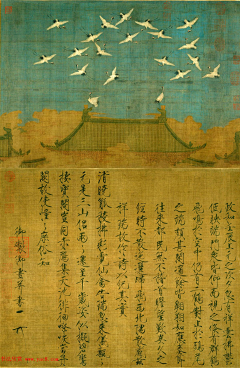 政和壬辰上元之次夕忽有祥雲拂鬱
低映端門衆皆仰而視之倏有群鶴
飛鳴於空中仍有二鶴對止於鴟尾
之端頗甚閒適餘皆翱翔如應奏節
往來都民無不稽首瞻望歎異久之
經時不散迤邐歸飛西北隅散感茲
祥瑞故作詩以紀其實
清曉觚稜拂彩霓仙禽告瑞忽來儀飄飄
元是三山侶兩兩還呈千歲姿似擬碧鸞
棲寶閣豈同赤鴈集天池徘徊嘹唳當丹
闕故使憧憧庶俗知
御製御畫并書